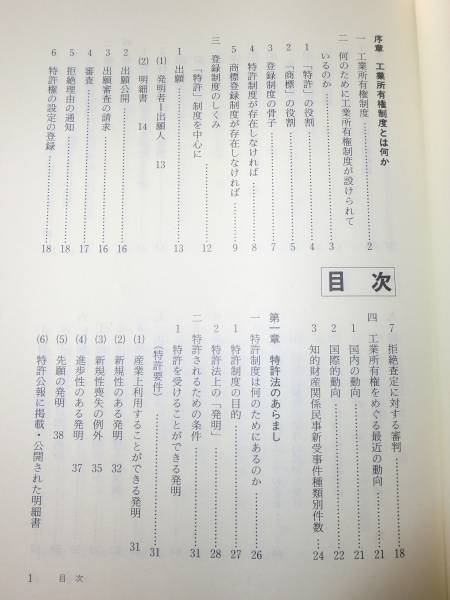 目次
序章 工業所有権制度とは何か
一 工業所有権制度……2
二 何のために工業所有権制度が設けられて
いるのか……3
1 「特許」の役割……4
2 「商標」の役割……5
3 登録制度の骨子……7
4 特許制度が存在しなければ……8
5 商標登録制度が存在しなければ……9
三 登録制度のしくみ
「特許」制度を中心に……12
1 出願……13
(1) 発明者＝出願人 13
(2) 明細書 14
2 出願公開……16
3 出願審査の請求……16
4 審査……17
5 拒絶理由の通知……18
6 特許権の設定の登録……18
7 拒絶査定に対する審判……18
四 工業所有権をめぐる最近の動向……21
1 国内の動向……21
2 国際的動向……22
3 知的財産関係民事新受事件種類別件数……24
第一章 特許法のあらまし
一 特許制度は何のためにあるのか……26
1 特許制度の目的……27
2 特許法上の「発明」……28
二 特許されるための条件……31
1 特許を受けることができる発明
(特許要件)……31
(1) 産業上利用することができる発明 31
(2) 新規性のある発明 32
(3) 新規性喪失の例外 35
(4) 進歩性のある発明 37
(5) 先願の発明 38
(6) 特許公報に掲載・公開された明細書
1 目次